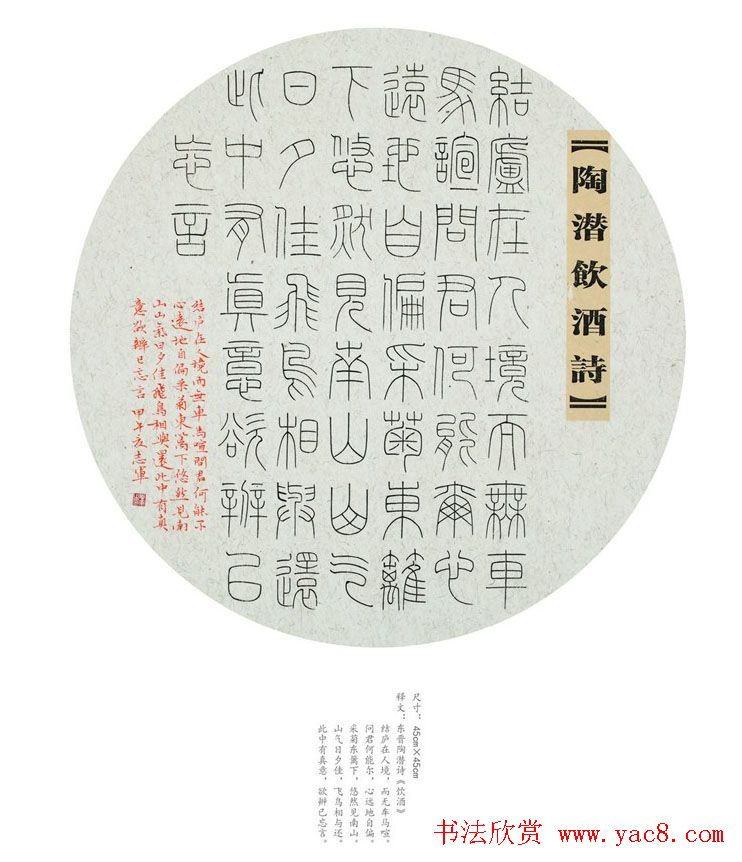 【陶潜飲酒詩】
結廬在人境而無車
馬諠問君何能爾心
遠地自偏采菊東籬
下悠然見南山山气
日夕佳飛鳥相與還
此中有真意欲辨已
忘言
结庐在人境而無車馬喧問君何能尔
心遠地自偏采菊東篱下悠然見南
山山氣日夕佳飛鳥相與還此中有真
意欲辨已忘言 甲午夏志軍
尺寸：45cm×45cm
释文：东晋陶潜诗《饮酒》
结庐在人境，而无车马喧。
问君何能尔，心远地自偏。
采菊东篱下，悠然见南山。
山气日夕佳，飞鸟相与还。
此中有真意，欲辨已忘言。
书法欣赏 www.yac8.com